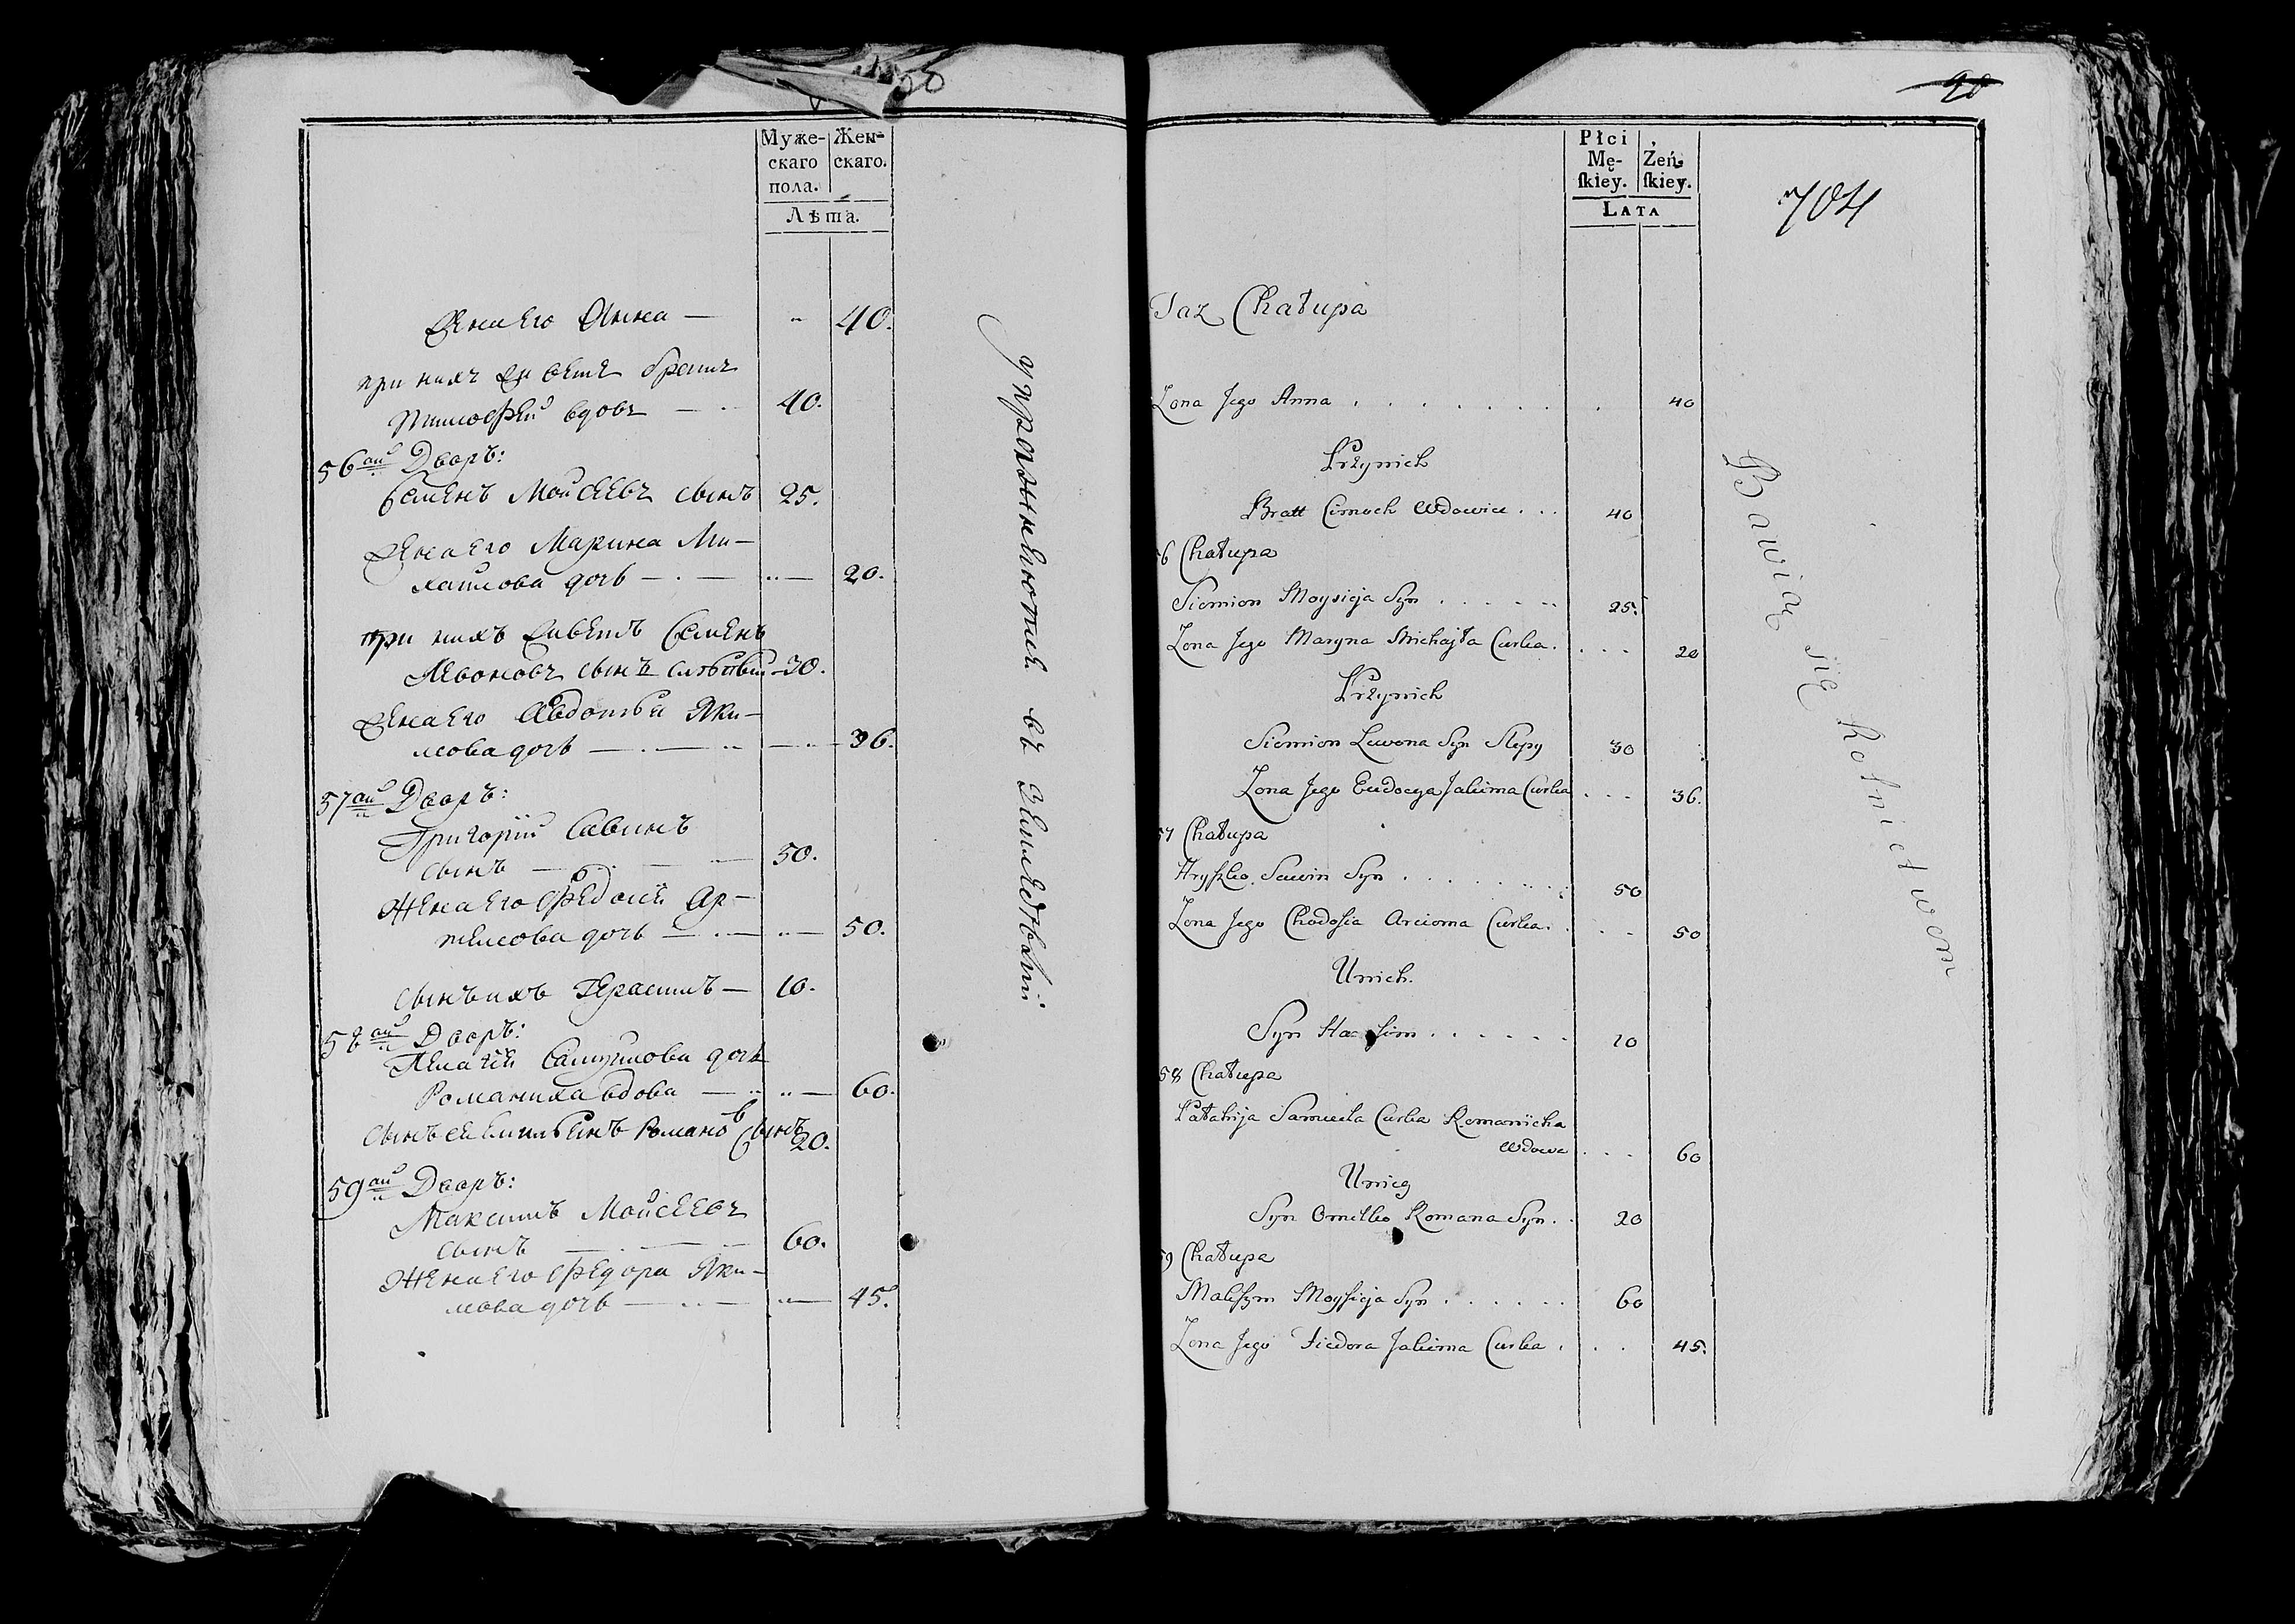 Муже-
скаго
пола.
Жен-
скаго.
Лѣта.
Жена Его Анна — " 40.
при нихъ живетъ братъ
Тимофей вдовъ — 40.
56ый Дворъ:
Семенъ Мойсеевъ сынъ 25.
Жена Его Марина Ми-
хайлова дочь — 20.
при нихъ живетъ Семенъ
Левоновъ сынъ слѣпый 30.
Жена Его Авдотья Яки-
мова дочь — 36.
57ый Дворъ:
Григорій Савинъ
сынъ — 50.
Жена Его Федосiя Ар-
темова дочь — 50.
сынъ ихъ Герасимъ — 10.
58ый Дворъ:
Пелагiя Самуилова дочь
Романиха вдова — 60.
сынъ ея Емильянъ Романовъ сынъ 20.
59ый Дворъ:
Максимъ Мойсеевъ
сынъ — 60.
Жена Его Федора Яки-
мова дочь — 45.
упражняются въ земледѣлiи
20
Płci
Mę-
skiey.
Żeń-
skiey.
LATA
704
Taz Chałupa
Zona Jego Anna . . . . . . . 40
Przynich
Bratt Cimoch Wdowiec . . . 40
56 Chałupa
Siemion Moysieja Syn . . . . . 25.
Zona Jego Maryna Michajła Curka . . . . 20
Przynich
Siemion Lewona Syn Slepy 30
Zona Jego Eudocya Jakima Curka . . . 36.
57 Chałupa
Hryszko Sawin Syn . . . . . . . 50
Zona Jego Chodosia Arcioma Curka . . . . 50
Unich.
Syn Ha sim . . . . . . 10
58 Chałupa
Pałahija Samuela Curka Romanicha
Wdowa . . . 60
Unicy
Syn Omelko Romana Syn . . 20
59 Chałupa
Maksym Moysieja Syn . . . . . . 60
Zona Jego Fiedora Jakima Curka . . . 45.
Bawią się Rolnictwem